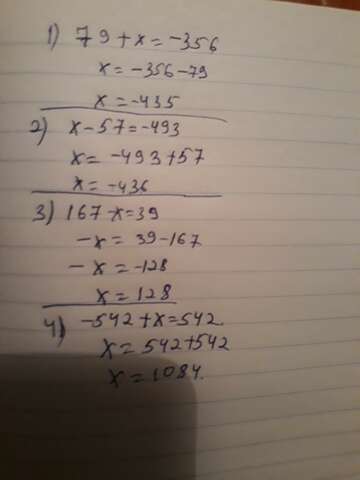 1) 79 + x = -356
x = -356 - 79
x = -435
2) x - 57 = -493
x = -493 + 57
x = -436
3) 167 - x = 39
-x = 39 - 167
-x = -128
x = 128
4) -542 + x = 542.
x = 542 + 542
x = 1084.